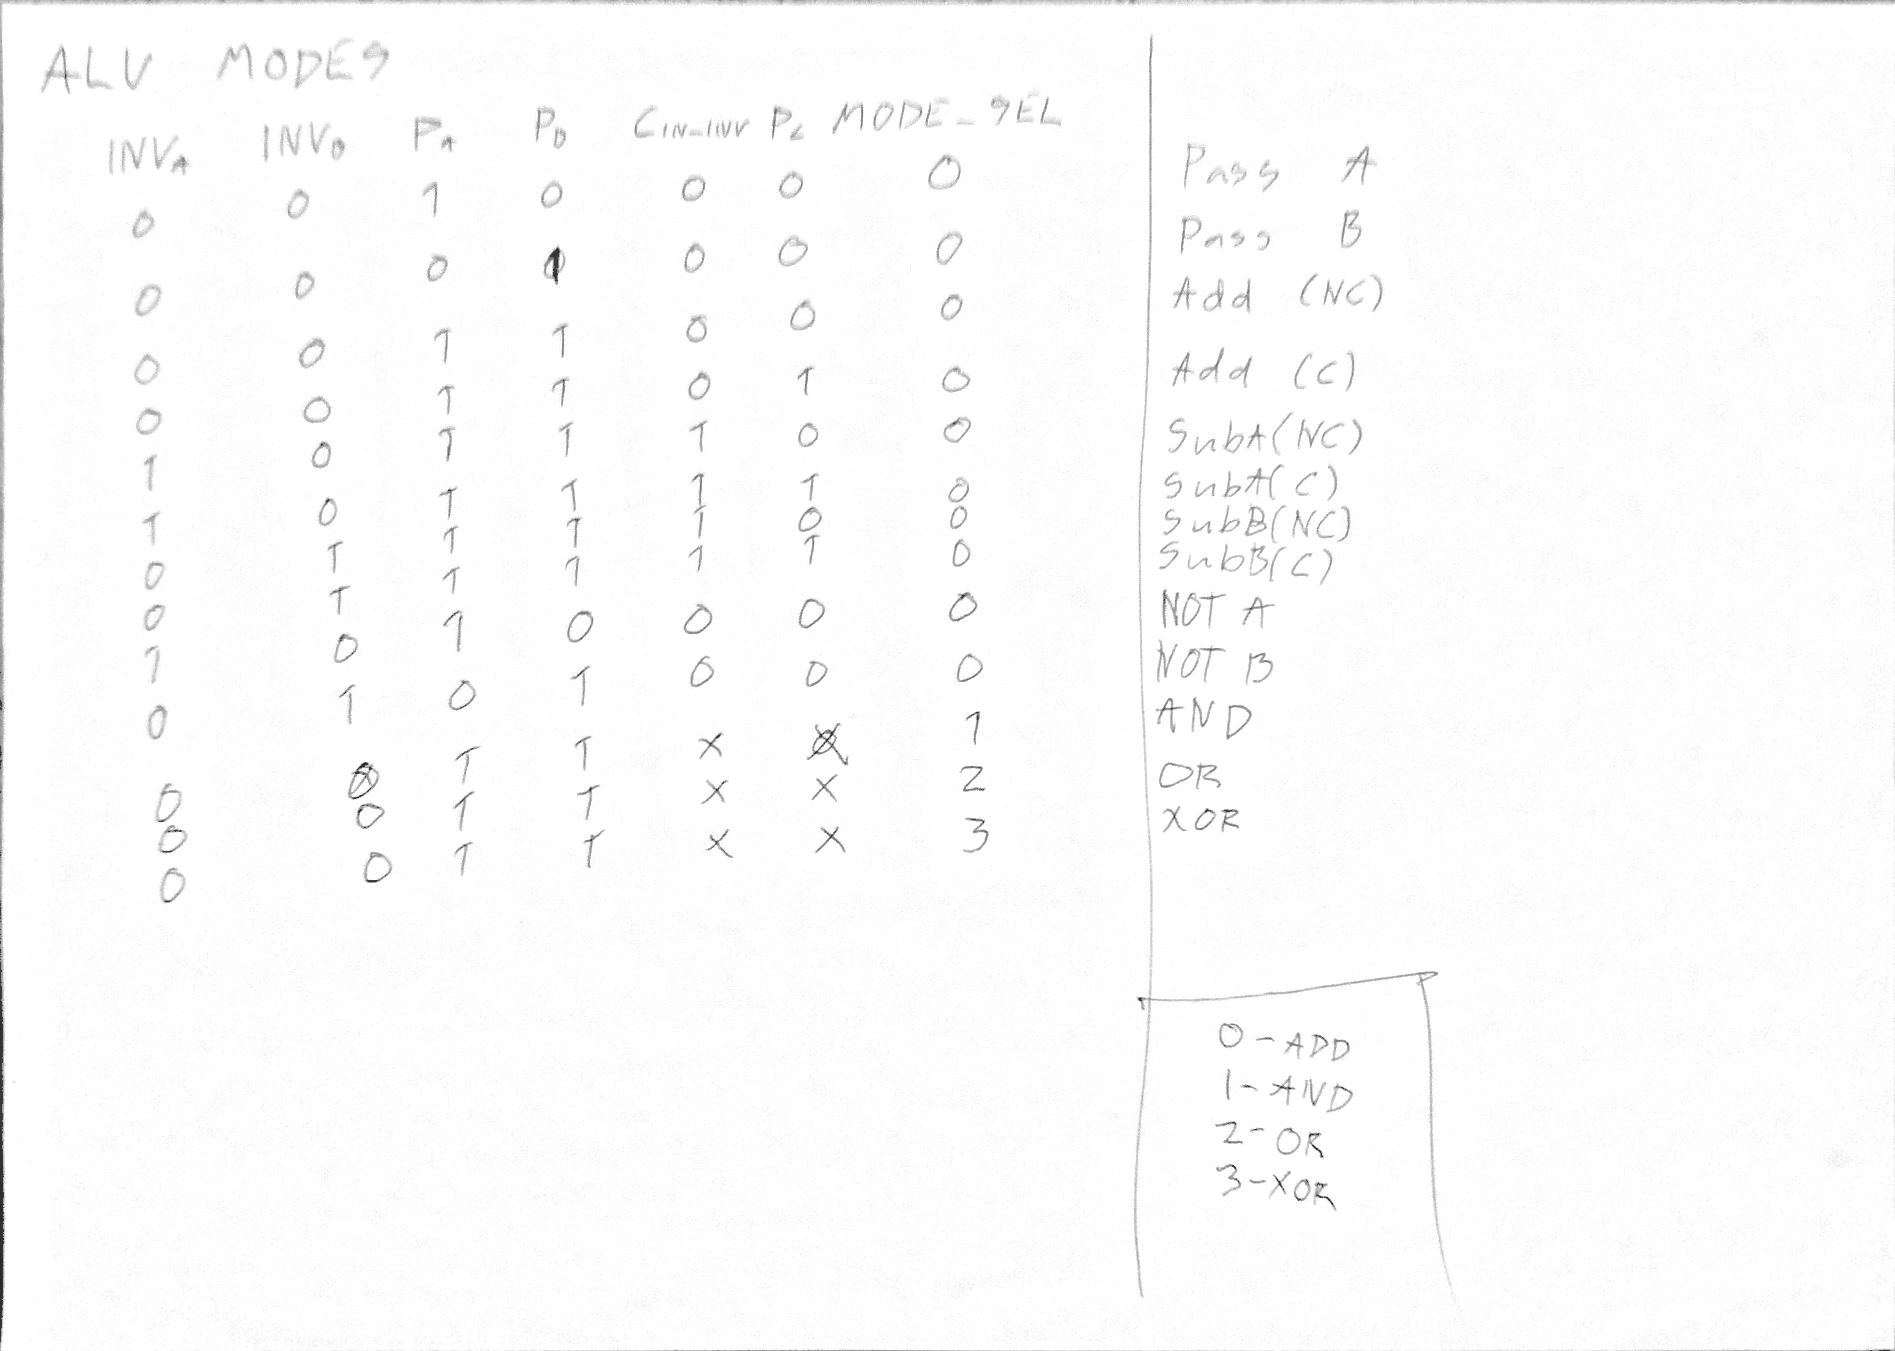 ALU MODES
INVA INVB PA PB CIN_INV PC MODE_SEL
0 0 1 0 0 0 0 Pass A
0 0 0 1 0 0 0 Pass B
0 0 1 1 0 0 0 Add (NC)
0 0 1 1 0 1 0 Add (C)
1 0 1 1 1 0 0 SubA(NC)
1 0 1 1 1 1 0 SubA(C)
0 1 1 1 1 0 0 SubB(NC)
0 1 1 1 1 1 0 SubB(C)
1 0 1 0 0 0 0 NOT A
0 1 0 1 0 0 0 NOT B
0 0 1 1 X X 1 AND
0 0 1 1 X X 2 OR
0 0 1 1 X X 3 XOR
0-ADD
1-AND
2-OR
3-XOR